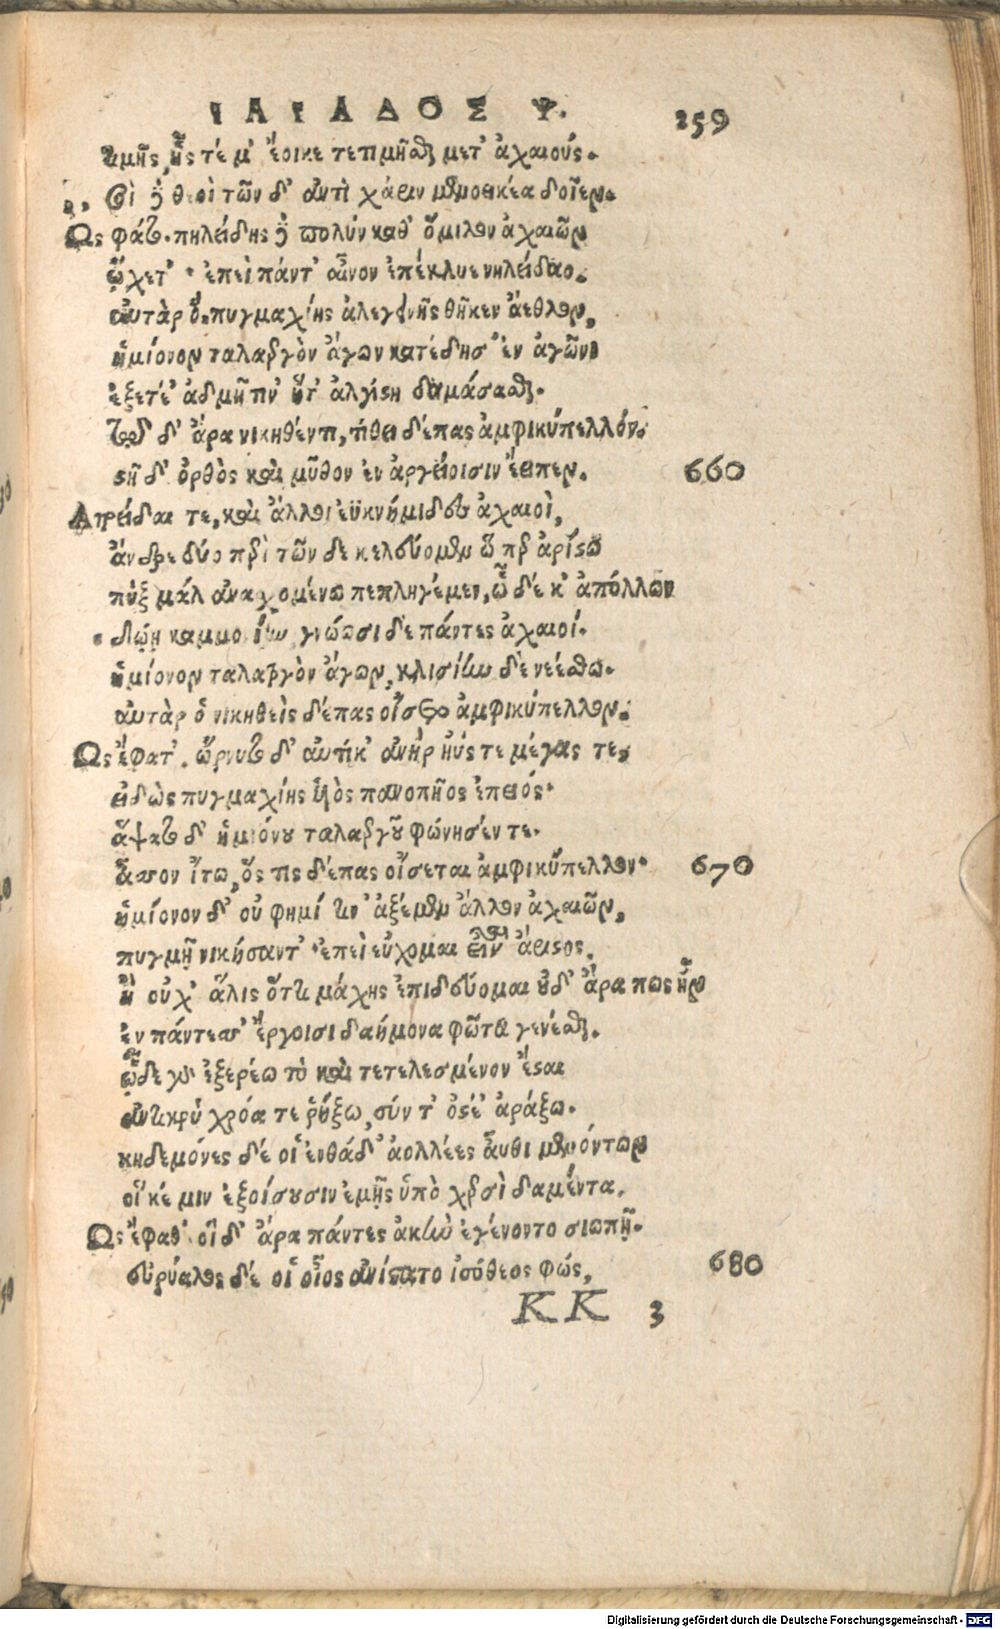 ΙΛΙΑΔΟΣ Ψ. 259
τιμῆς, ἧς τέ μ' ἔοικε τετιμῆσθαι μετ' ἀχαιούς.
Σοὶ δὲ θεοὶ τῶν δ' ἀντὶ χάριν μενοεικέα δοῖεν.
Ως φάτο. πηλείδης δὲ πολὺν καθ' ὅμιλον ἀχαιῶν
ᾤχετ' ἐπεὶ πάντ' αἶνον ἐπέκλυε νηλείδαο.
αὐτὰρ ὁ πυγμαχίης ἀλεγεινῆς θῆκεν ἄεθλον,
ἡμίονον ταλαεργὸν ἄγων κατέδησ' ἐν ἀγῶνι
ἑξετέ' ἀδμῆτιν ἥτ' ἀλγίστη δαμάσασθαι.
τῷ δ' ἄρα νικηθέντι, τίθει δέπας ἀμφικύπελλόν.
στῆ δ' ὀρθὸς καὶ μῦθον ἐν ἀργείοισιν ἔειπεν. 660
Ατρείδαι τε, καὶ ἄλλοι ἐϋκνήμιδες ἀχαιοὶ,
ἄνδρε δύο περὶ τῶν δε κελεύομεν ὥ περ ἀρίστω
πὺξ μάλ ἀνασχομένω πεπληγέμεν, ᾧ δέ κ' ἀπόλλων
δώῃ καμμονίην γνώωσι δὲ πάντες ἀχαιοί.
ἡμίονον ταλαεργὸν ἄγων, κλισίην δὲ νεέσθω.
αὐτὰρ ὁ νικηθεὶς δέπας οἴσεται ἀμφικύπελλον.
Ως ἔφατ'. ὤρνυτο δ' αὐτίκ' ἀνὴρ ἠΰς τε μέγας τε,
εἰδὼς πυγμαχίης υἱὸς πανοπῆος ἐπειός.
ἅψατο δ' ἡμιόνου ταλαεργοῦ φώνησέν τε.
ἆσσον ἴτω, ὅς τις δέπας οἴσεται ἀμφικύπελλον. 670
ἡμίονον δ' οὔ φημί τιν' ἀξέμεν ἄλλον ἀχαιῶν,
πυγμῇ νικήσαντ' ἐπεὶ εὔχομαι εἶναι ἄριστος.
ἦ οὐχ' ἅλις ὅττι μάχης ἐπιδεύομαι οὐδ' ἄρα πως ἦν
ἐν πάντεσσ' ἔργοισι δαήμονα φῶτα γενέσθαι.
ὧδε γὰρ ἐξερέω τὸ καὶ τετελεσμένον ἔσται
ἀντικρὺ χρόα τε ῥήξω, σύν τ' ὀστέ' ἀράξω.
κηδεμόνες δέ οἱ ἐνθάδ' ἀολλέες αὖθι μενόντων
οἵ κέ μιν ἐξοίσουσιν ἐμῇς ὑπὸ χερσὶ δαμέντα.
Ως ἔφαθ' οἵ δ' ἄρα πάντες ἀκὴν ἐγένοντο σιωπῇ.
εὐρύαλος δέ οἱ οἶος ἀνίστατο ἰσόθεος φώς, 680
KK 3
Digitalisierung gefördert durch die Deutsche Forschungsgemeinschaft - DFG